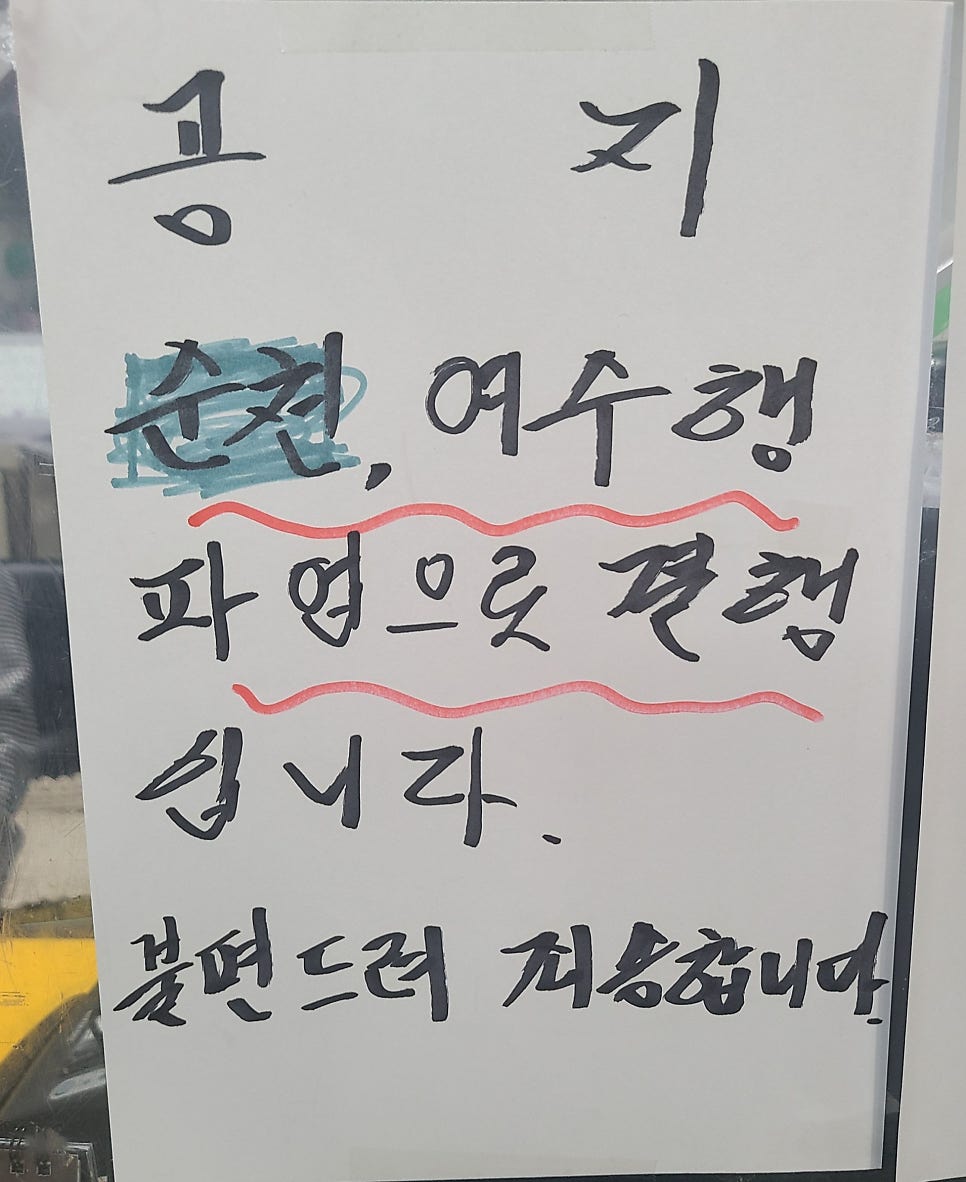 공 지
순천, 여수행
파업으로 결행
십니다.
불편드려 죄송합니다.